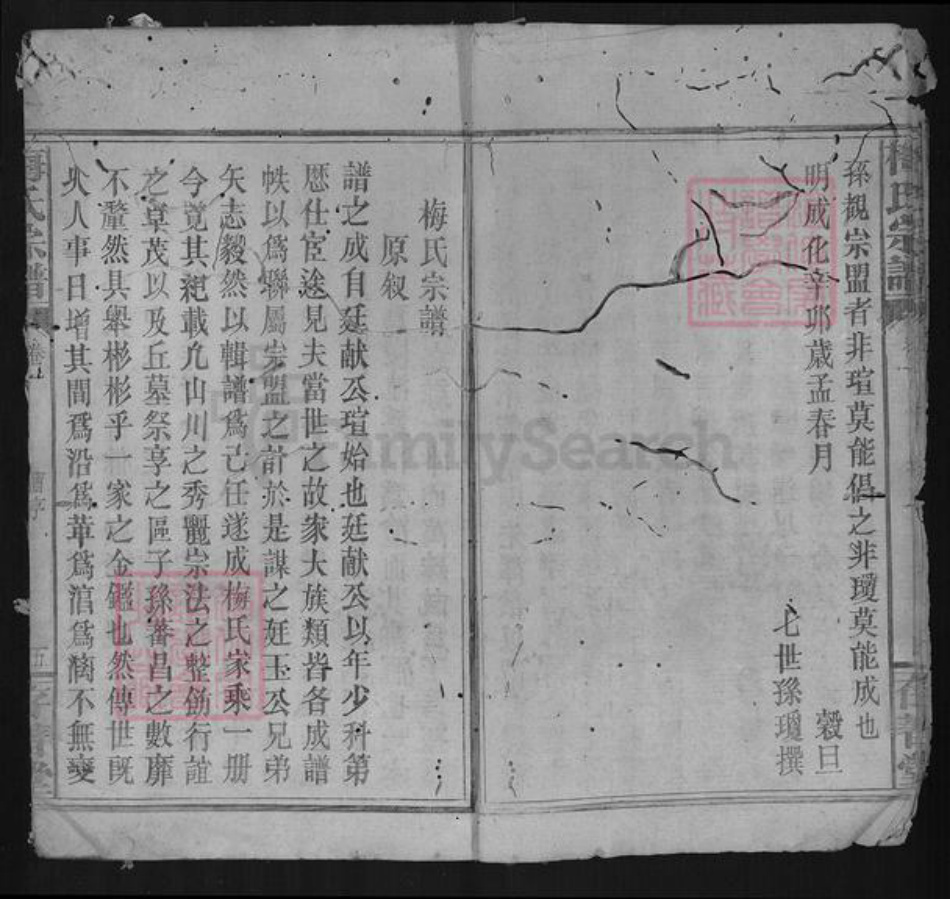 孫觀宗盟者非瑄莫能倡之非瓊莫能成也
明成化辛邜歲孟春月
穀旦
七世孫瓊撰
梅氏宗譜
原叙
譜之成自廷献公瑄始也廷献公以年少科第
歷仕宦途見夫當世之故家大族類皆各成譜
帙以爲聯屬宗盟之計於是謀之廷玉公兄弟
矢志毅然以輯譜爲己任遂成梅氏家乘一册
今覽其紀載凢山川之秀麗宗法之整飭行誼
之卓茂以及丘墓祭享之區子孫蕃昌之數靡
不釐然具舉彬彬乎一家之金鑑也然傳世旣
乆人事日增其間爲沿爲革爲淯爲漓不無變
梅氏宗譜
卷
五
FamilySearch